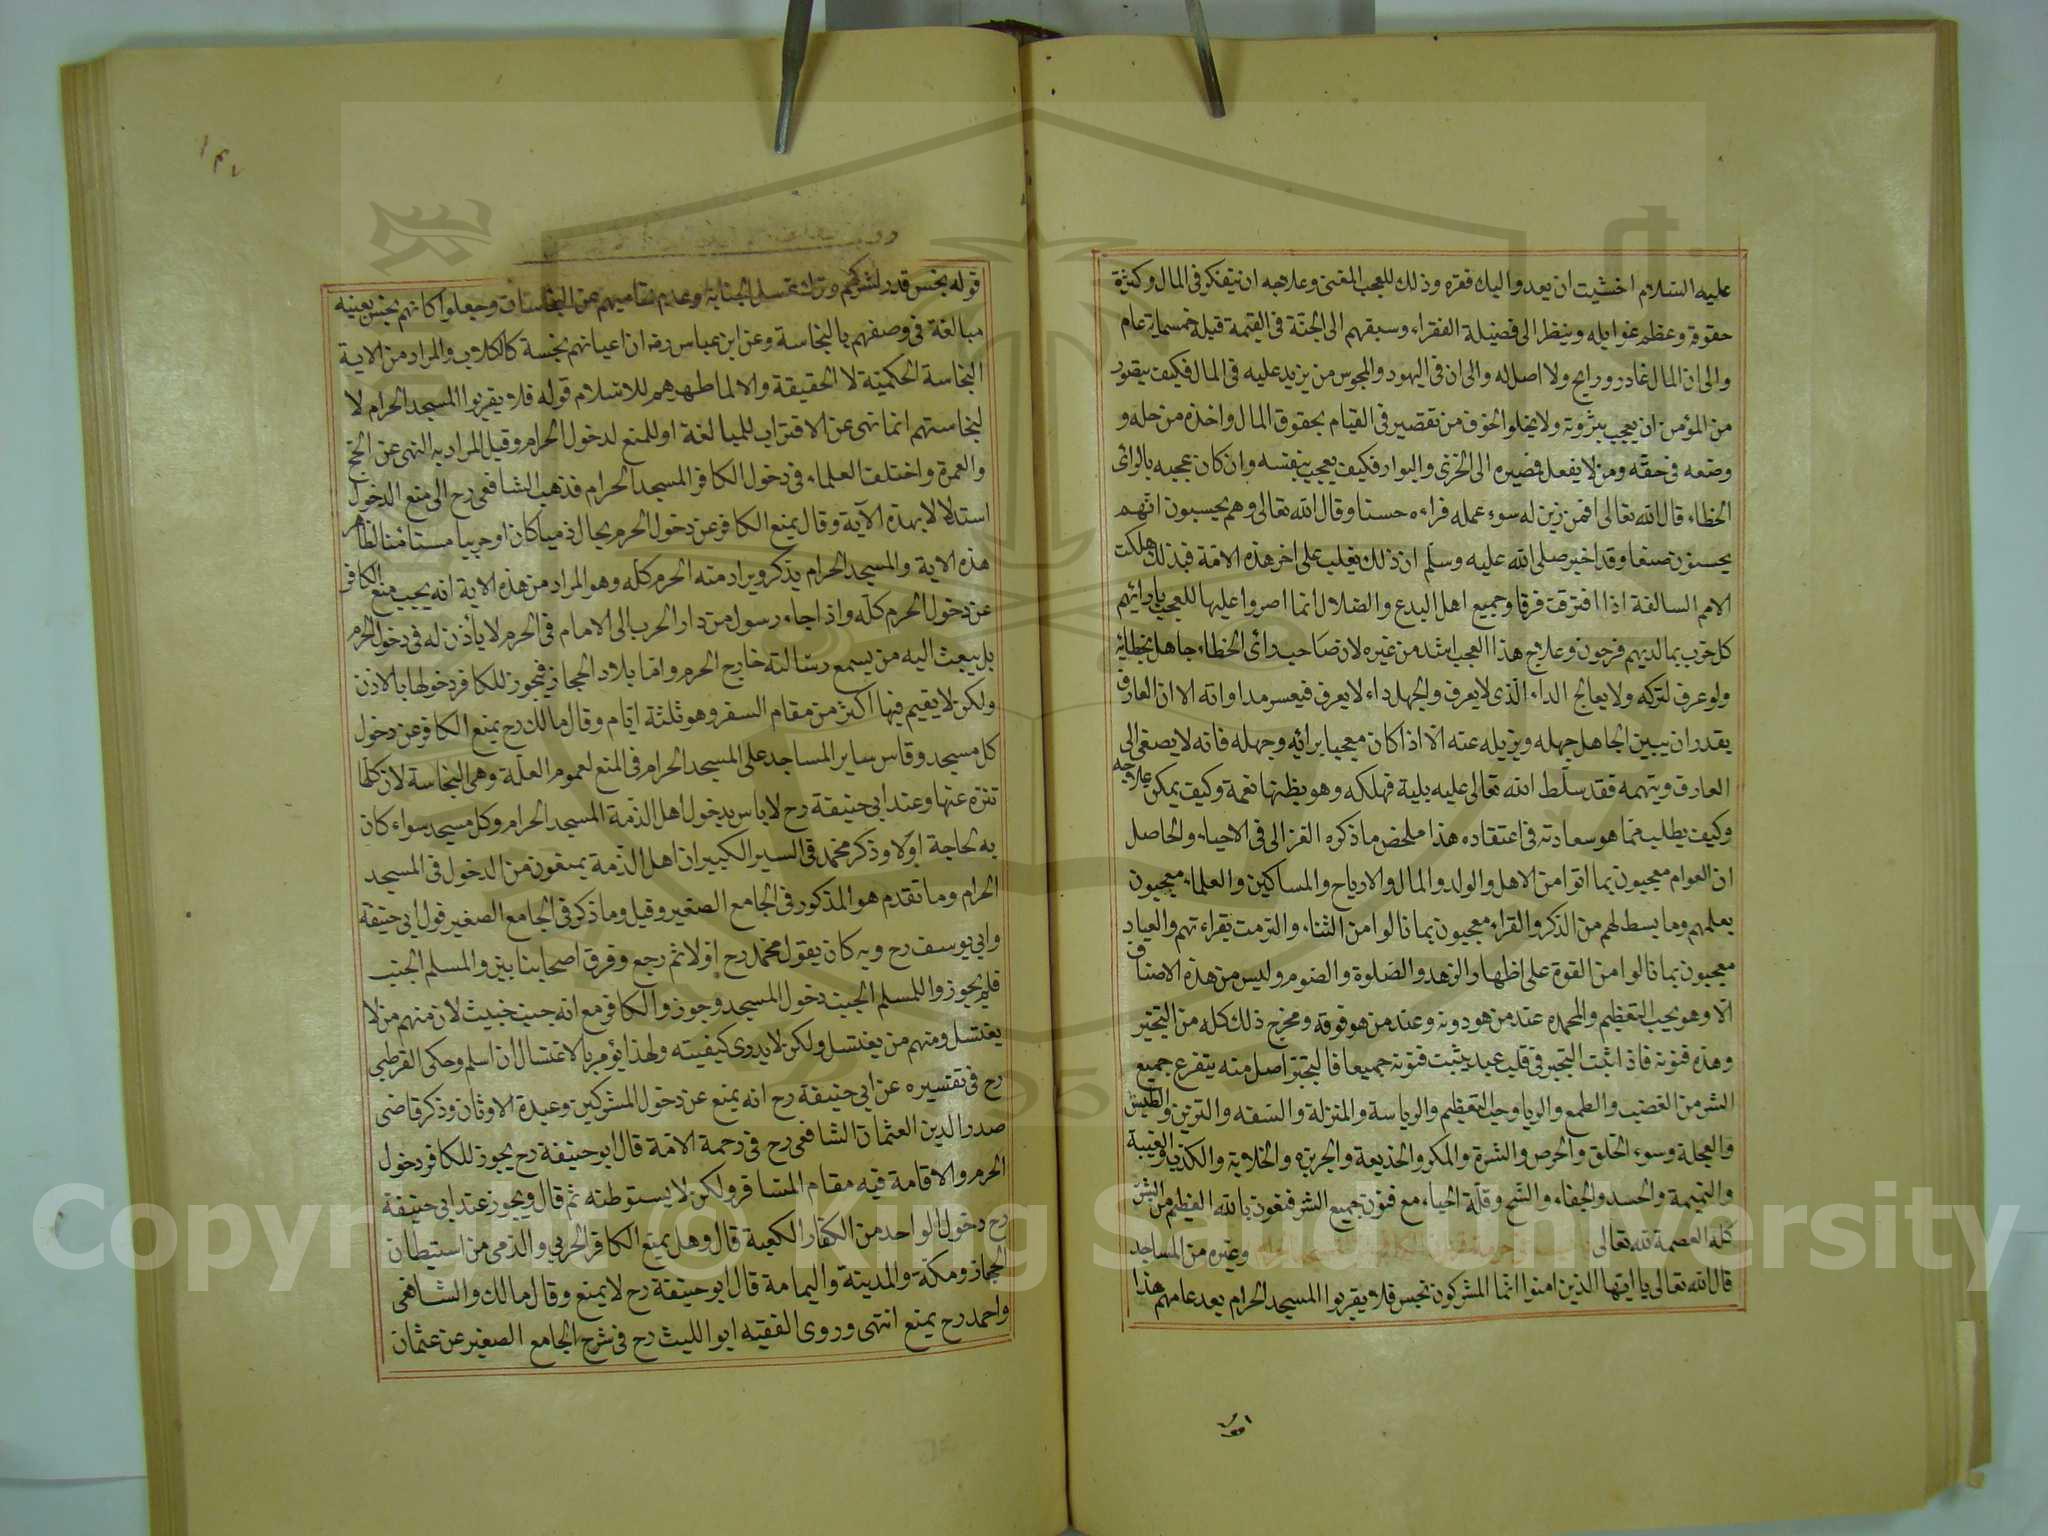 عليه السلام اخشيت ان يعدو اليك فقره وذلك للعجب المغنى وعلاجه ان يتفكر فى المال وكثرة
حقوقه وعظم غوايله وينظر الى فضيلة الفقراء وسبقهم الى الجنة فى القيمة قبله خمسماية عام
والى ان المال غاد ورايح ولا اصل له والى ان فى اليهود والمجوس من يزيد عليه فى المال فكيف يتصور
من المؤمن ان يعجب بثروته ولا يخلو الخوف من تقصير فى القيام بحقوق المال واخذه من حله و
وضعه فى حقه ومن لا يفعل فصيره الى الخزى والبوار فكيف يعجب بنفسه وان كان عجبه بالرائ
الخطاء قال الله تعالى افمن زين له سوء عمله فراه حسنا وقال الله تعالى وهم يحسبون انهم
يحسنون صنعا وقد اخبر صلى الله عليه وسلم ان ذلك يغلب على اخر هذه الامة فبذلك هلكت
الامم السالفة اذا افترقت فرقا وجميع اهل البدع والضلال انما اصروا عليها للعجب بارائهم
كل حزب بما لديهم فرحون وعلاج هذا العجب اشد من غيره لان صاحب رائ الخطاء جاهل بخطائه
ولو عرف لتركه ولا يعالج الداء الذى لا يعرف والجهل داء لا يعرف فيعسر مداواته الا ان العارف
يقدر ان يبين الجاهل جهله ويزيله عنه الا اذا كان معجبا برائه وجهله فانه لا يصغى الى
العارف ويتهمه فقد سلط الله تعالى عليه بلية تهلكه وهو يظنها نعمة وكيف يمكن علاجه
وكيف يطلب مما هو سعادته فى اعتقاده هذا ملخص ما ذكره الغزالى فى الاحياء والحاصل
ان العوام معجبون بما اتوا من الاهل والولد والمال والارباح والمساكين والعلماء معجبون
بعلمهم وما يسط لهم من الذكر والقراء معجبون بما نالوا من الثناء والتزمت بقراءتهم والعباد
معجبون بما نالوا من القوة على اظهار الزهد والصلوة والصوم وليس من هذه الاصناف
الا وهو يحب التعظيم والمحمدة عند من هو دونه وعند من هو فوقه ومخرج ذلك كله من التجبر
وهذه فنونه فاذا ثبت التجبر فى قلب عبد يثبت فنونه جميعا فالتجبر اصل منه يتفرع جميع
الشر من الغضب والطمع والريا وحب التعظيم والرياسة والمنزلة والسفه والتزين والطيش
والعجلة وسوء الخلق والحرص والشره والمكر والخديعة والجربزة والخلابة والكذب والغيبة
والنميمة والحسد والجفاء والشح وقلة الحياء مع فنون جميع الشر فنعوذ بالله العظيم من الشر
كله العصمة لله تعالى وغيره من المساجد
قال الله تعالى يا ايها الذين امنوا انما المشركون نجس فلا يقربوا المسجد الحرام بعد عامهم هذا
قوله
١٤٧
قوله نجس قدر لشركهم وترك غسل الجنابة وعدم تحاميهم عن النجاسات وجعلوا كانهم نجس بعينه
مبالغة فى وصفهم بالنجاسة وعن ابن عباس رضه ان اعيانهم نجسة كالكلاب والمراد من الاية
النجاسة الحكمية لا الحقيقة والا لما طهرهم للاسلام قوله فلا يقربوا المسجد الحرام لا
لنجاستهم انما نهى عن الاقتراب للمبالغة او للمنع لدخول الحرام وقيل المراد به النهى عن الحج
والعمرة واختلف العلماء فى دخول الكافر المسجد الحرام فذهب الشافعى رح الى منع الدخول
استدلالا بهذه الآية وقال يمنع الكافر عن دخول الحرم بحال ذميا كان او حربيا مستامنا لظاهر
هذه الاية والمسجد الحرام يذكر ويراد منه الحرم كله وهو المراد من هذه الاية انه يجب منع الكافر
عن دخول الحرم كله واذا جاء رسول من دار الحرب الى الامام فى الحرم لا يأذن له فى دخول الحرم
بل يبعث اليه من يسمع رسالته خارج الحرم واما بلاد الحجاز فيجوز للكافر دخولها بالاذن
ولكن لا يقيم فيها اكثر من مقام السفر وهو ثلثة ايام وقال مالك رح يمنع الكافر عن دخول
كل مسجد وقاس ساير المساجد على المسجد الحرام فى المنع لعموم العلة وهى النجاسة لان كلها
تنزه عنها وعند ابى حنيفة رح لا باس بدخول اهل الذمة المسجد الحرام وكل مسجد سواء كان
به لحاجة اولا وذكر محمد فى السير الكبير ان اهل الذمة يمنعون من الدخول فى المسجد
الحرام وما تقدم هو المذكور فى الجامع الصغير وقيل وما ذكر فى الجامع الصغير قول ابى حنيفة
وابى يوسف رح وبه كان يقول محمد رح اولا ثم رجع وفرق اصحابنا بين والمسلم الجنب
فلم يجوزوا للمسلم الجنب دخول المسجد وجوزوا لكافر مع انه جنب خبيث لان منهم من لا
يغتسل ومنهم من يغتسل ولكن لا يدرى كيفيته ولهذا يؤمر بالاغتسال ان اسلم وحكى القرطبى
رح فى تفسيره عن ابى حنيفة رح انه يمنع عن دخول المشركين وعبدة الاوثان وذكر قاضى
صدر الدين العثمان الشافعى رح فى رحمة الامة قال ابو حنيفة رح يجوز للكافر دخول
الحرم والاقامة فيه مقام المسافر ولكن لا يستوطنه ثم قال ويجوز عند ابى حنيفة
رح دخول الواحد من الكفار الكعبة قال وهل يمنع الكافر الحربى والذمى من استيطان
الحجاز ومكة والمدينة واليمامة قال ابو حنيفة رح لا يمنع وقال مالك والشافعى
واحمد رح يمنع انتهى وروى الفقيه ابو الليث رح فى شرح الجامع الصغير عن عثمان
Copyright © King Saud University